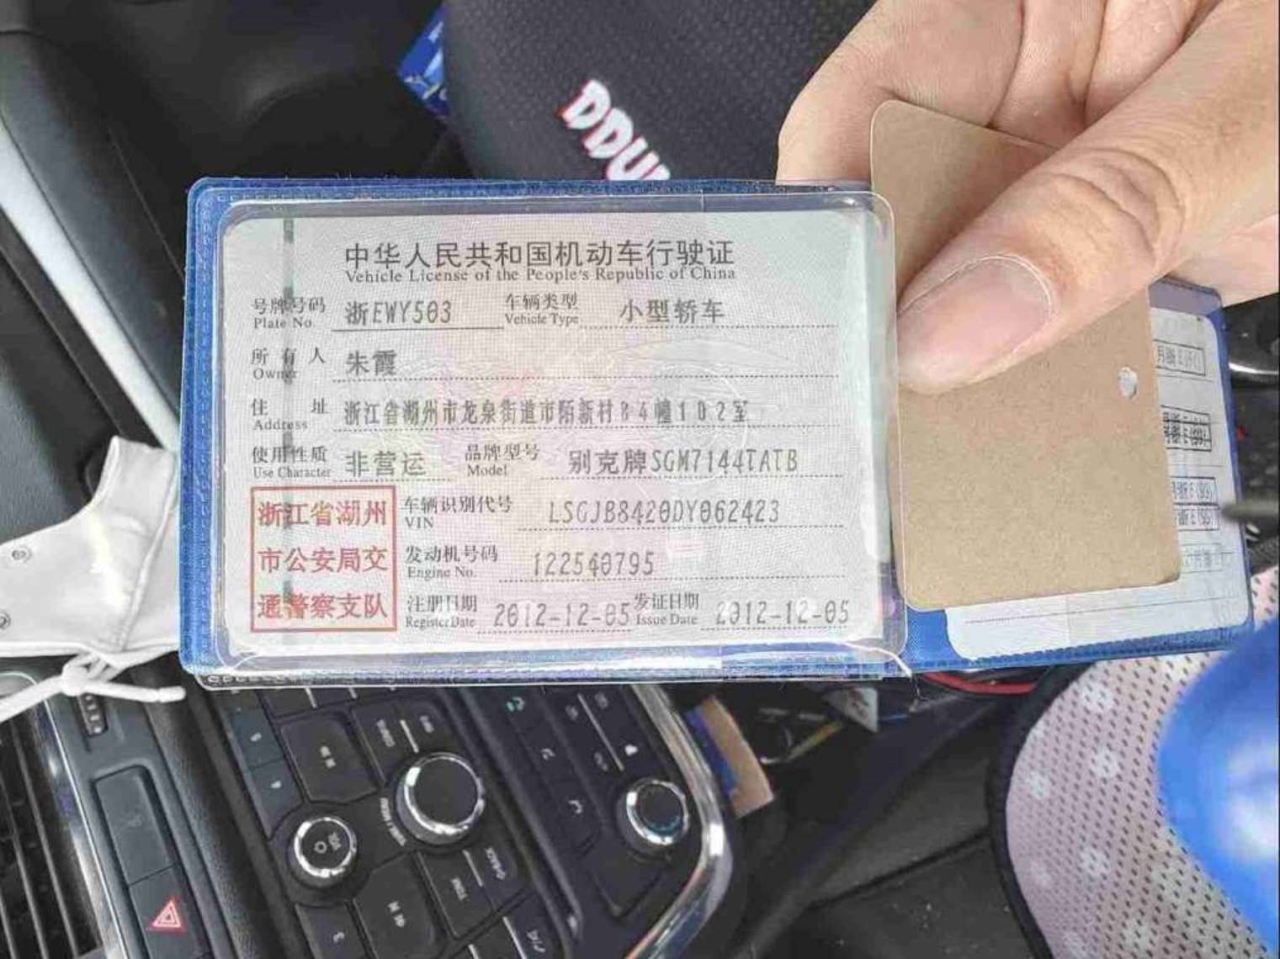 DDU
中华人民共和国机动车行驶证
Vehicle License of the People's Republic of China
号牌号码 浙EWY503 车辆类型 小型轿车
Plate No. Vehicle Type
所有人 朱霞
Owner
住址 浙江省湖州市龙泉街道市陌新村84幢102室
Address
使用性质 非营运 品牌型号 别克牌SGM7144TATB
Use Character Model
浙江省湖州
市公安局交
通警察支队
车辆识别代号 LSGJB8420DY062423
VIN
发动机号码 122540795
Engine No.
注册日期 2012-12-05 发证日期 2012-12-05
Register Date Issue Date